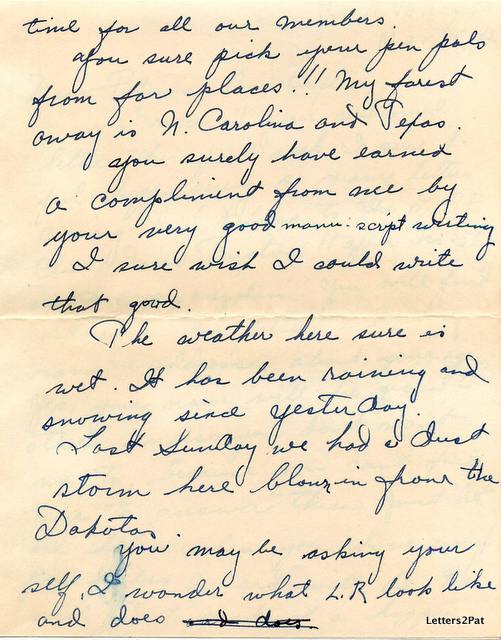 time for all our members.
You sure pick your pen pals
from far places!!! My farest
away is N. Carolina and Texas.
You surely have earned
a compliment from me by
your very good manu-script writing
I sure wish I could write
that good.
The weather here sure is
wet. It has been raining and
snowing since yesterday.
Last Sunday we had a dust
storm here blown in from the
Dakotas.
You may be asking your
self, I wonder what L.R look like
and does and does
Letters2Pat